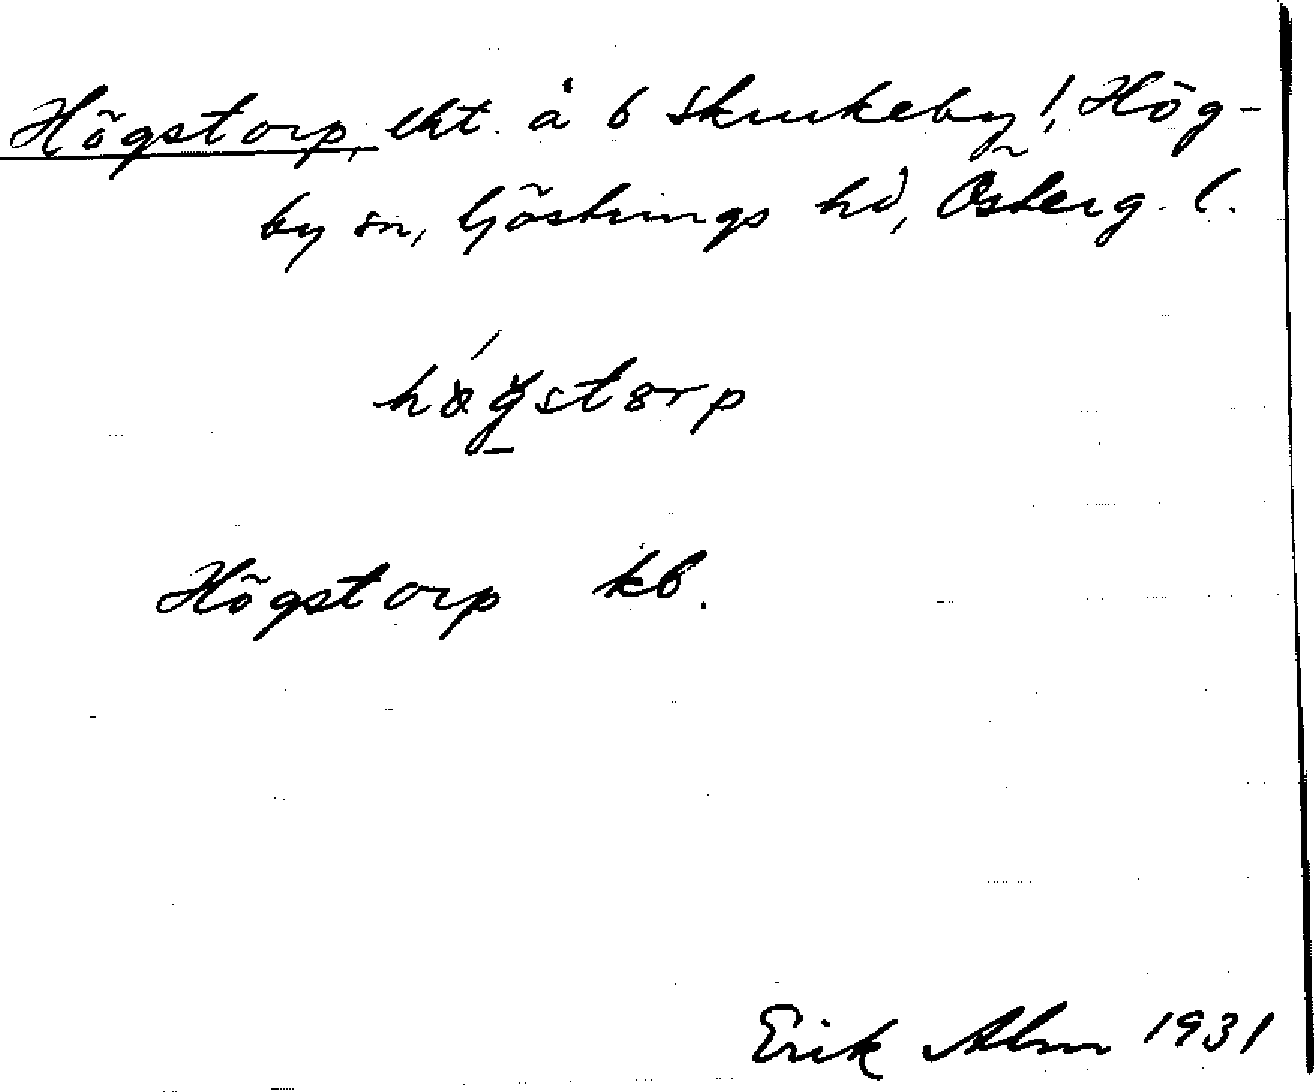 Högstorp, lht. å 6 Skrukeby!, Hög-
by sn, Göstrings hd, Österg. l.
högstorp
Högstorp kb.
Erik Alm 1931